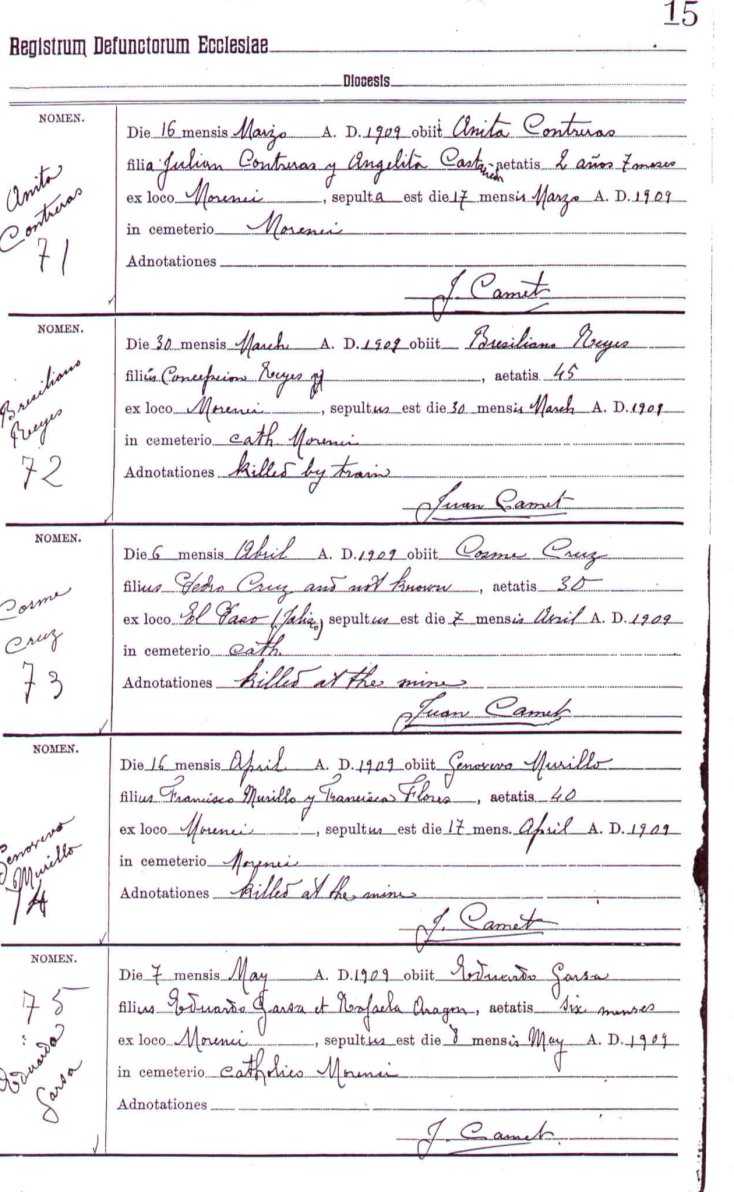 15
Registrum Defunctorum Ecclesiae
Diocesis
NOMEN.
Anita
Contreras
71
Die 16 mensis Marzo A. D. 1909 obiit Anita Contreras
filia Julian Contreras y Angelita aetatis 2 años 7 meses
ex loco Morenci, sepulta est die 17 mensis Marzo A. D. 1909
in cemeterio Morenci
Adnotationes
J. Camet
NOMEN.
Bresiliano
Reyes
72
Die 30 mensis March A. D. 1909 obiit Bresiliano Reyes
filius Concepcion Reyes y, aetatis 45
ex loco Morenci, sepultus est die 30 mensis March A. D. 1909
in cemeterio cath. Morenci
Adnotationes killed by train
Juan Camet
NOMEN.
Cosme
Cruz
73
Die 6 mensis Abril A. D. 1909 obiit Cosme Cruz
filius Pedro Cruz and not known, aetatis 30
ex loco El Paso sepultus est die 7 mensis Avril A. D. 1909
in cemeterio cath.
Adnotationes killed at the mine
Juan Camet
NOMEN.
Genovevo
Murillo
74
Die 16 mensis April A. D. 1909 obiit Genovevo Murillo
filius Francisco Murillo y Francisca Flores, aetatis 40
ex loco Morenci, sepultus est die 17 mens. April A. D. 1909
in cemeterio Morenci
Adnotationes killed at the mine
J. Camet
NOMEN.
75
Eduardo
Garsa
Die 7 mensis May A. D. 1909 obiit Eduardo Garsa
filius Eduardo Garsa et Rafaela Aragon, aetatis six menses
ex loco Morenci, sepultus est die 8 mensis May A. D. 1909
in cemeterio catholico Morenci
Adnotationes
J. Camet